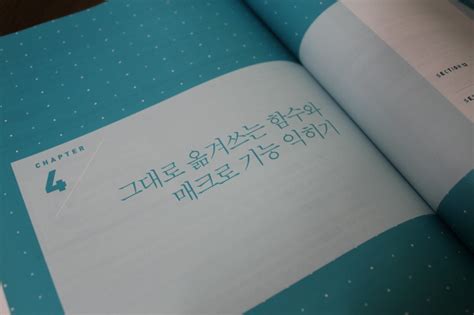 CHAPTER
4
그대로 옮겨쓰는 함수와
매크로 기능 익히기